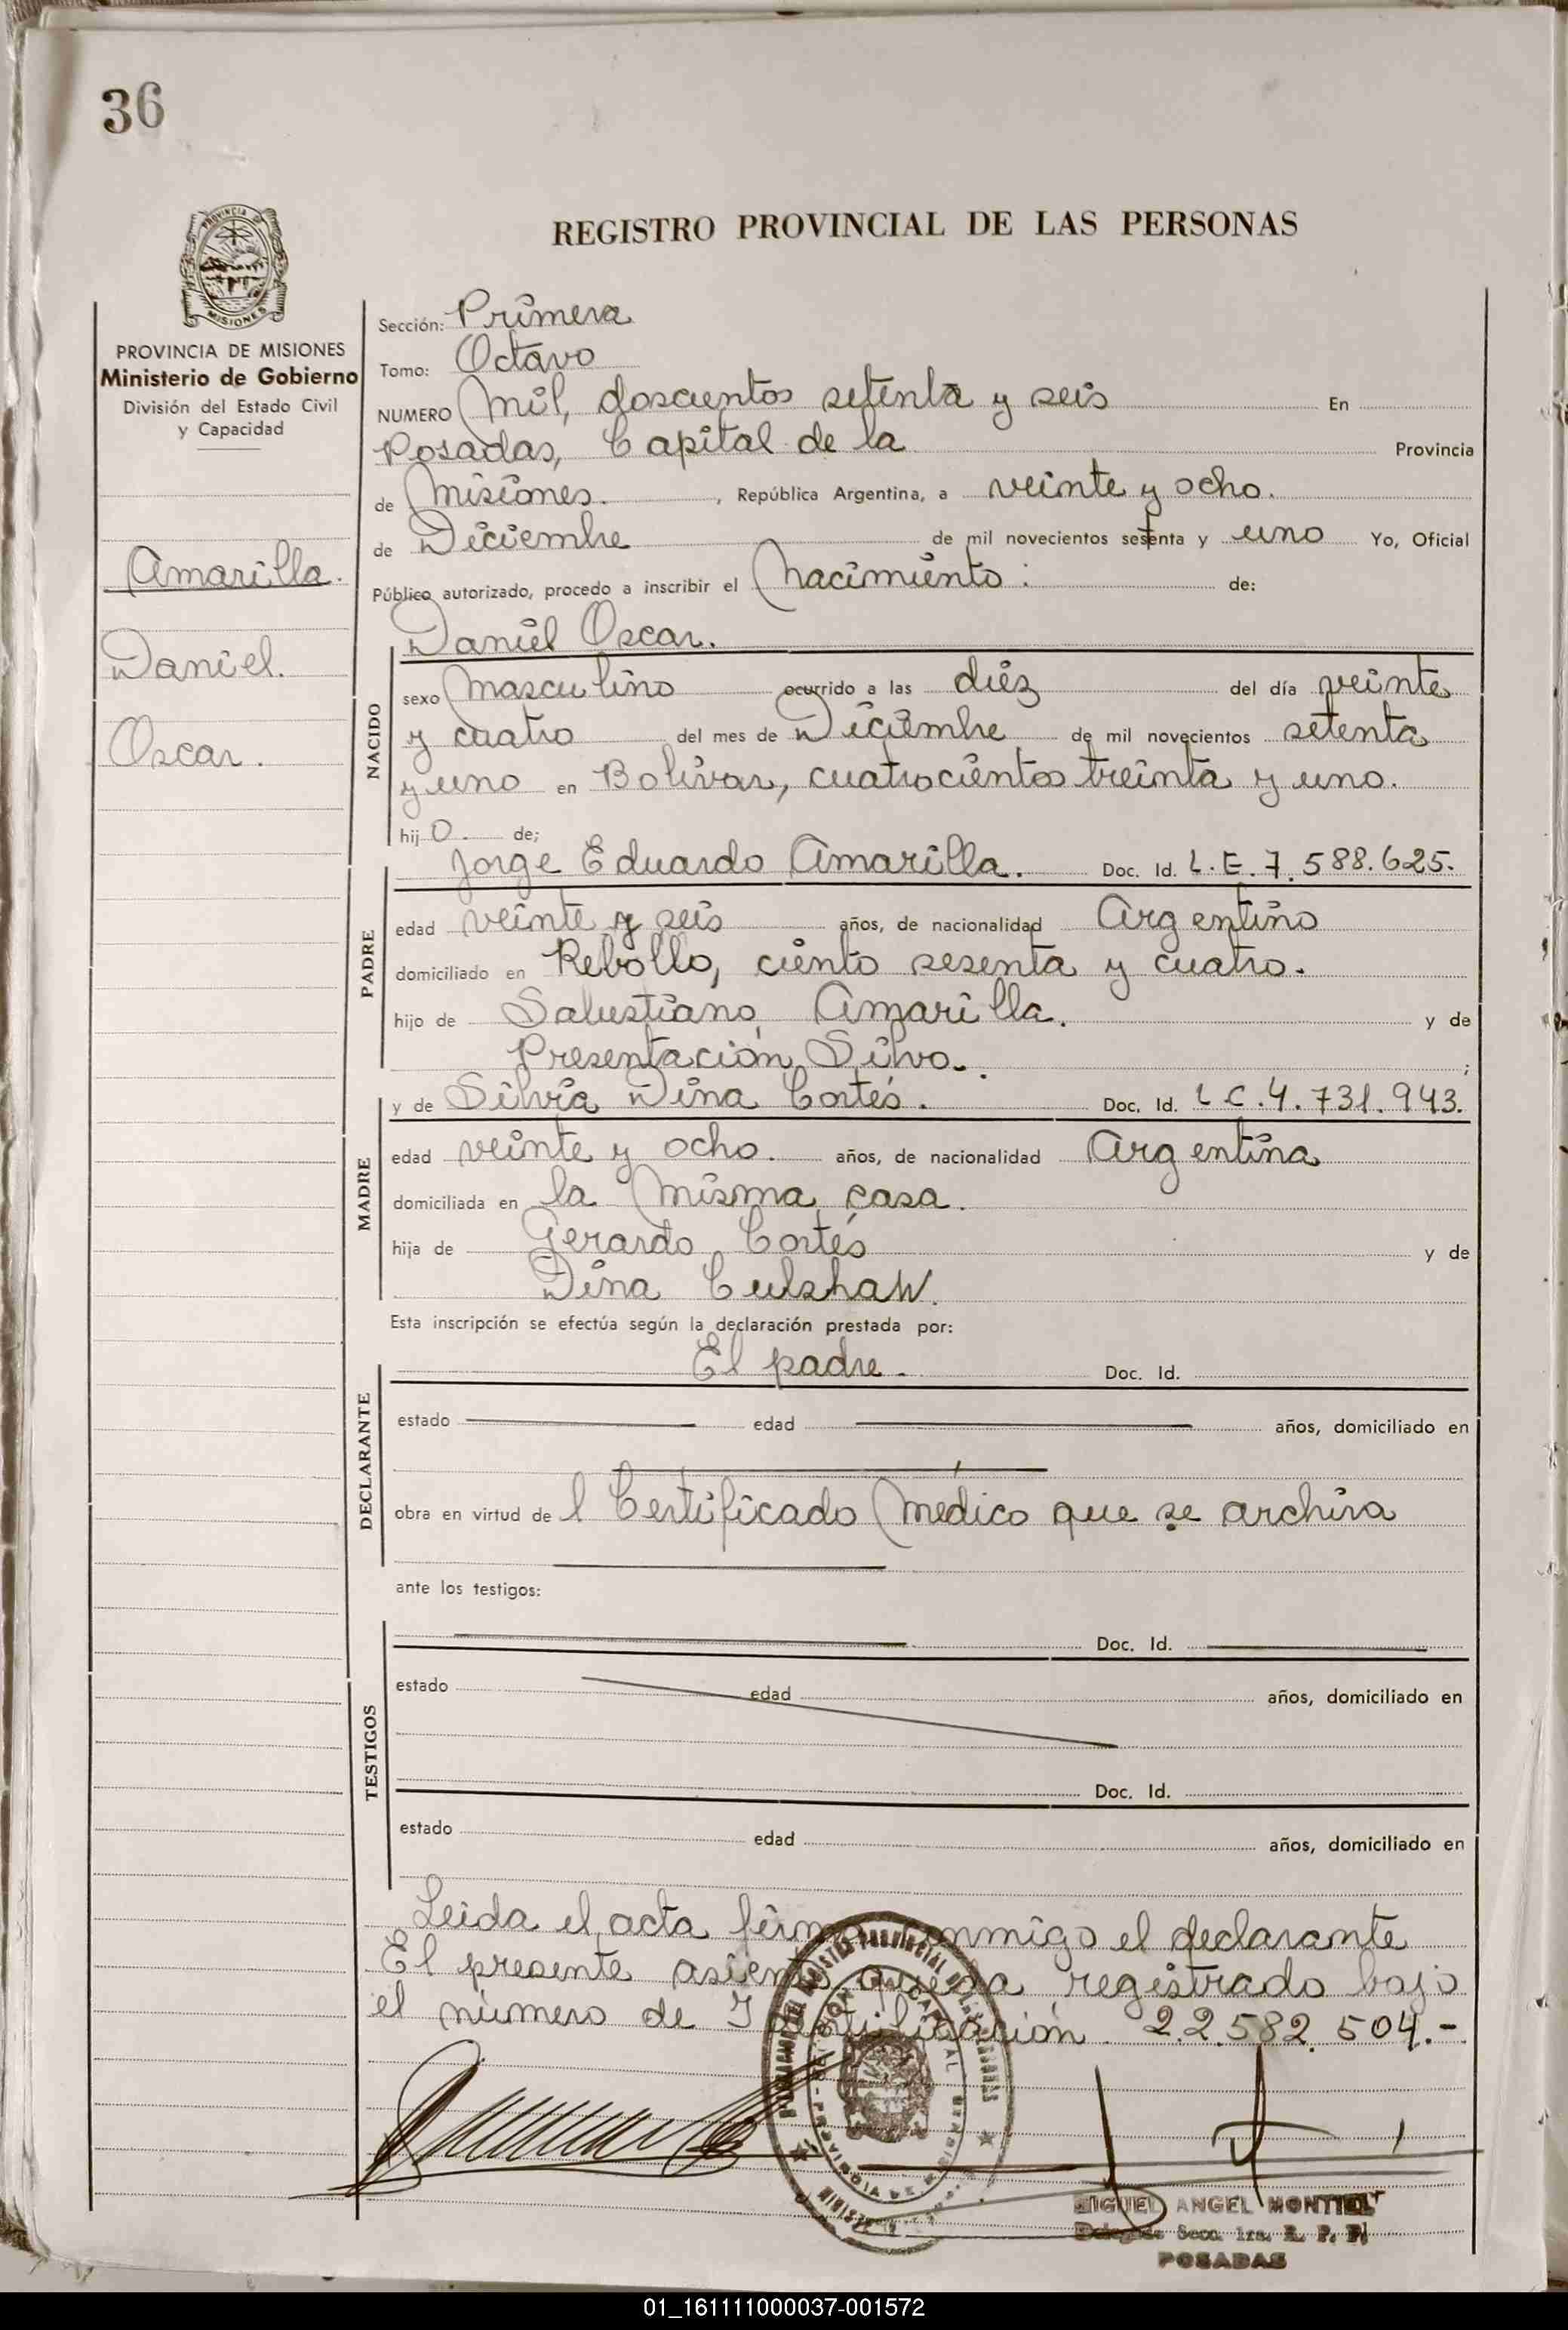 36
REGISTRO PROVINCIAL DE LAS PERSONAS
PROVINCIA DE
MISIONES
PROVINCIA DE MISIONES
Ministerio de Gobierno
División del Estado Civil
y Capacidad
Amarilla.
Daniel.
Oscar.
Sección: Primera
Tomo: Octavo
NUMERO Mil, doscientos setenta y seis En
Posadas, Capital de la Provincia
de Misiones. , República Argentina, a veinte y ocho.
de Diciembre de mil novecientos setenta y uno Yo, Oficial
Público autorizado, procedo a inscribir el Nacimiento: de:
Daniel Oscar.
NACIDO
sexo Masculino ocurrido a las diéz del día veinte
y cuatro del mes de Diciembre de mil novecientos setenta
y uno en Bolívar, cuatrocientos treinta y uno.
hij o. de;
Jorge Eduardo Amarilla. Doc. Id. L.E. 7.588.625.
PADRE
edad veinte y seis años, de nacionalidad Argentino
domiciliado en Rebollo, ciento sesenta y cuatro.
hijo de Salustiano Amarilla. y de
Presentación Silvo. ;
y de Silvia Dina Cortés. Doc. Id. L C. 4.731.943.
MADRE
edad veinte y ocho. años, de nacionalidad Argentina
domiciliada en la misma casa.
hija de Gerardo Cortés y de
Dina Culshaw.
Esta inscripción se efectúa según la declaración prestada por:
El padre. Doc. Id.
DECLARANTE
estado edad años, domiciliado en
obra en virtud de l Certificado Médico que se archiva
ante los testigos:
Doc. Id.
TESTIGOS
estado edad años, domiciliado en
Doc. Id.
estado edad años, domiciliado en
Leida el acta firma conmigo el declarante
El presente asiento queda registrado bajo
el número de Identificación 22.582.504.-
MIGUEL ANGEL MONTIEL
Delegado Secc. 1ra. R. P. P.
POSADAS
01_161111000037-001572